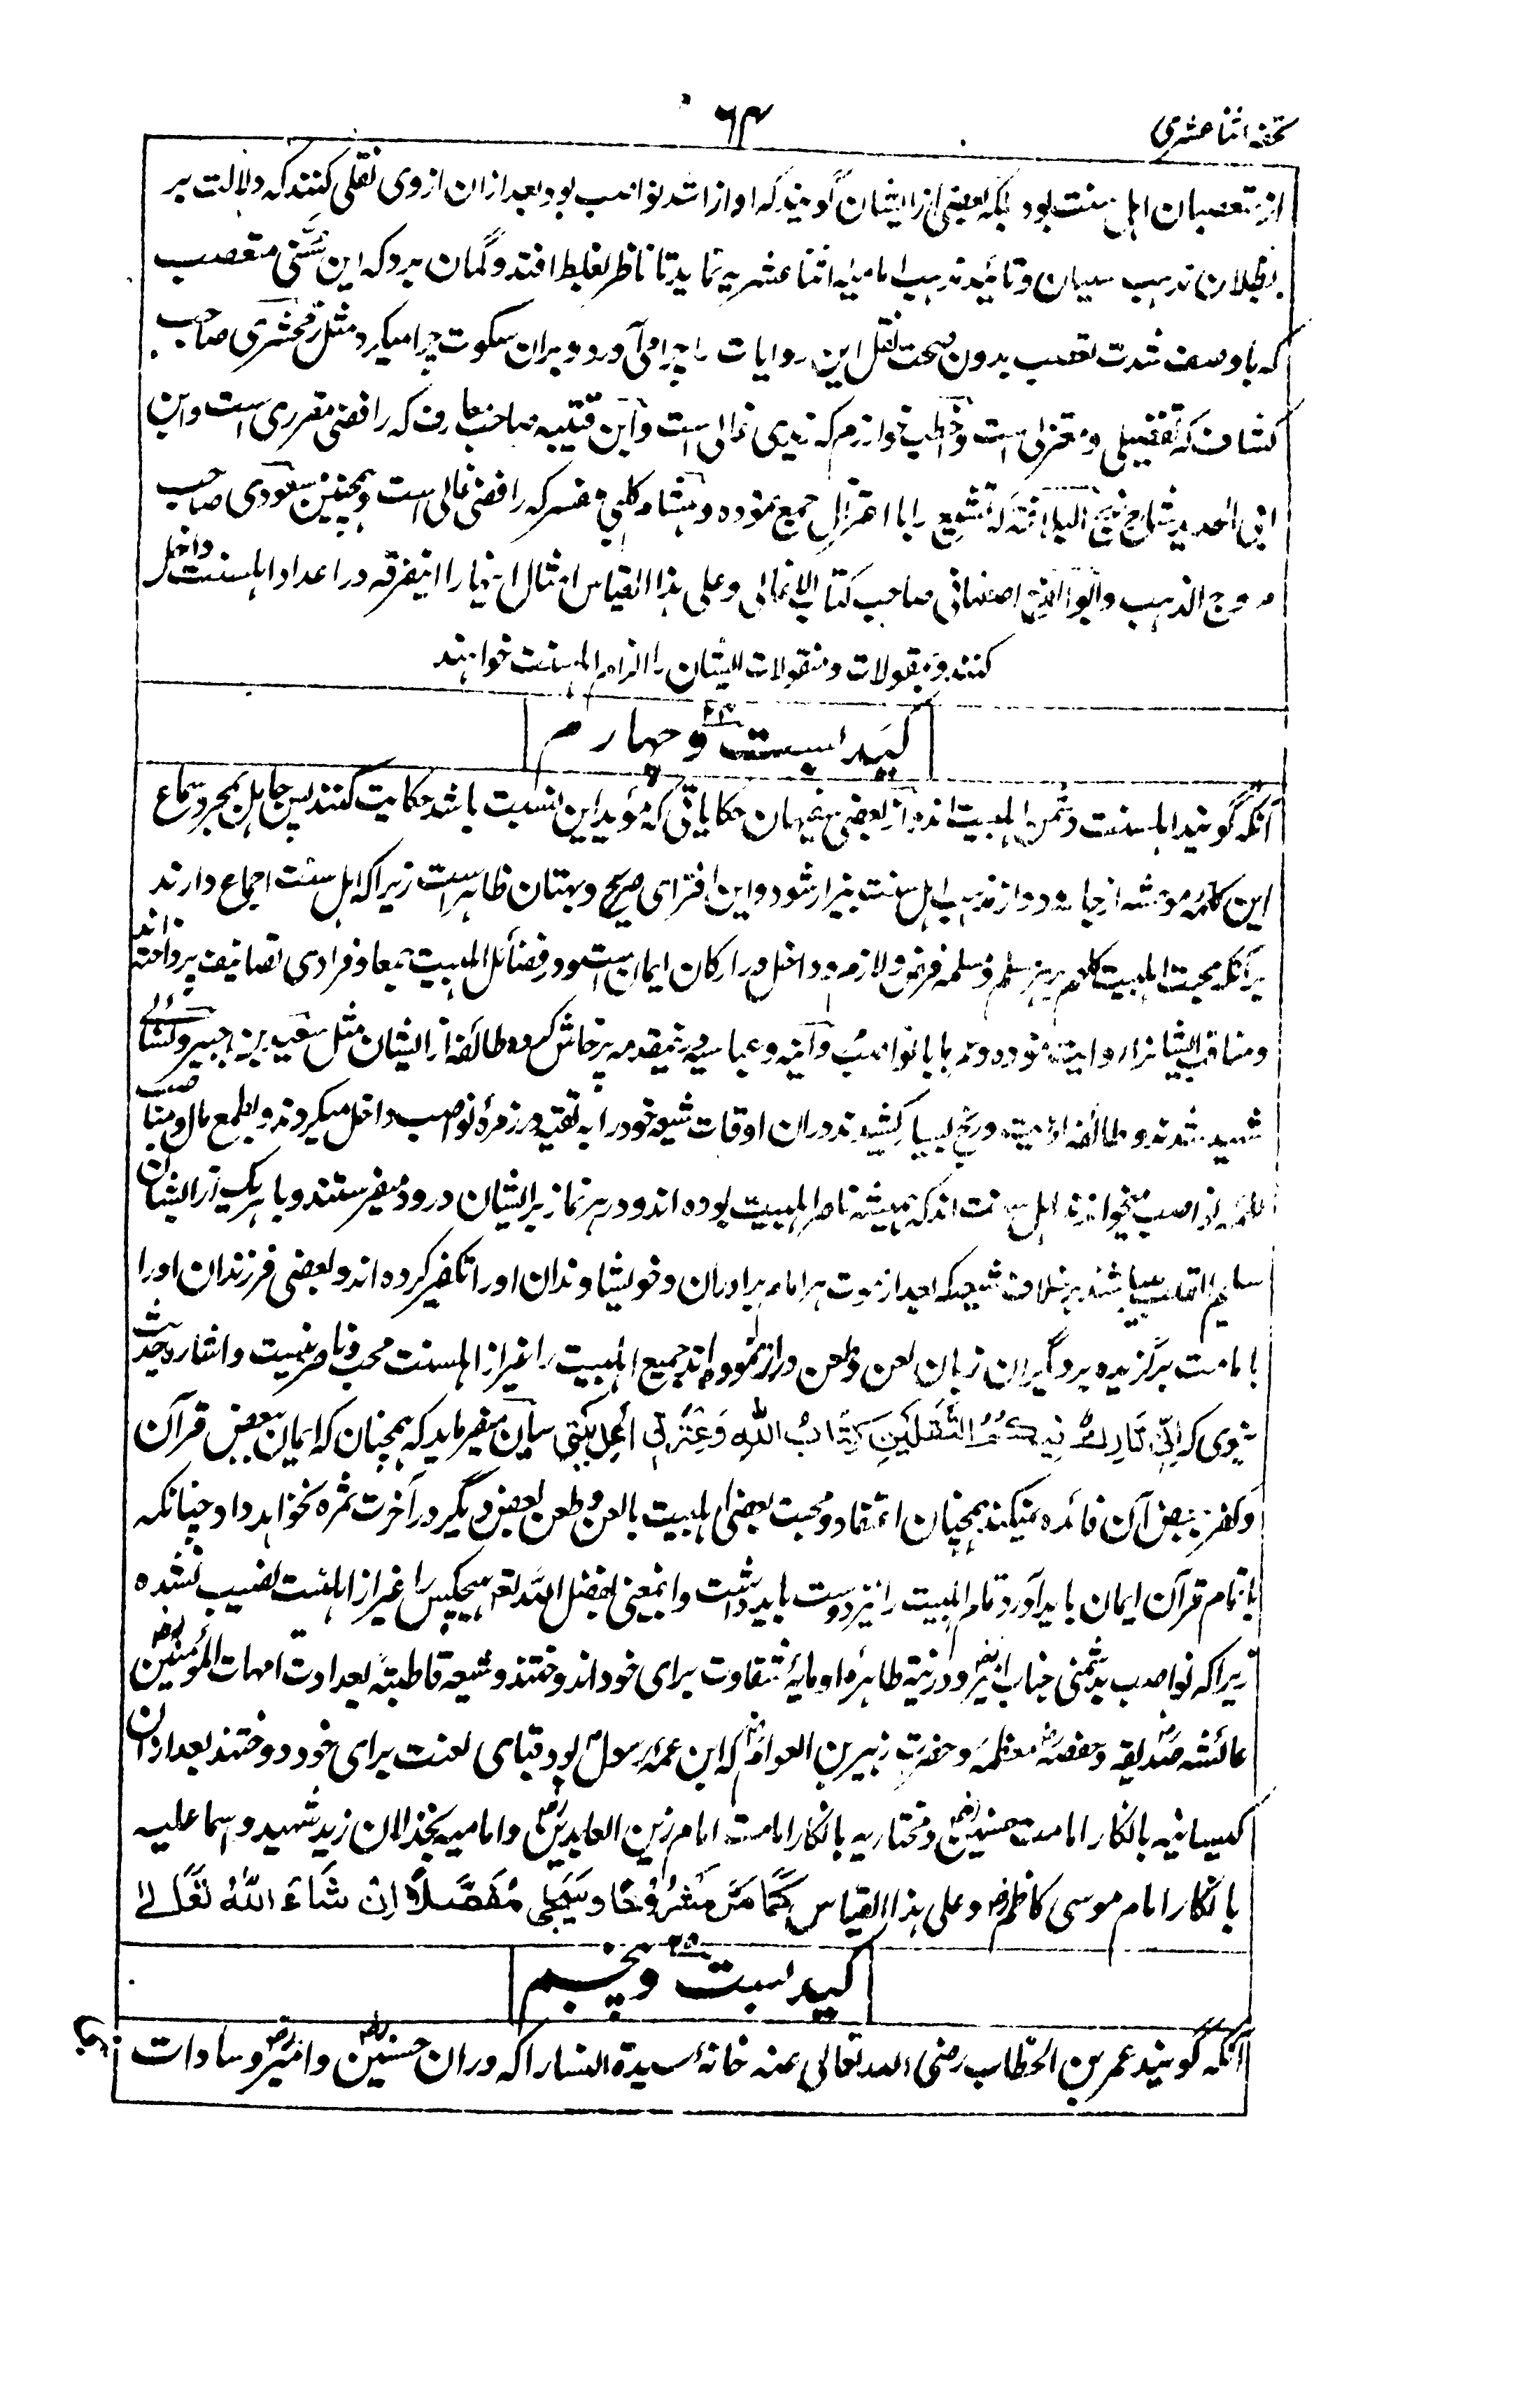 تحفهٔ اثنا عشری
۶۴
از متعصبان اهل سنت بود بلکه بعضی از ایشان گویند که او از اشد نواصب بود بعد ازان از وی نقلی کنند که دلالت بر
بطلان مذهب سنیان و تائید مذهب امامیه اثنا عشریه نماید تا ناظر بغلط افتد و گمان برد که این سُنّی متعصب
که با وصف شدت تعصب بدون صحت نقل این روایات را چرا می آورد و بران سکوت چرا میکرد مثل زمخشری صاحب
کشاف که تفضیلی و معتزلی است و اخطب خوارزم که زیدی غالی است و ابن قتیبه صاحب معارف که رافضی مقرری است و ابن
ابی الحدید شارح نهج البلاغة که تشیع را با اعتزال جمع نموده و هشام کلبی مفسر که رافضی غالی است و همچنین مسعودی صاحب
مروج الذهب و ابو الفرج اصفهانی صاحب کتاب الاغانی و علی هذا القیاس امثال اینها را اینفرقه در اعداد اهلسنت داخل
کنند و بمقولات و منقولات ایشان الزام اهلسنت خواهند
کید بیست و چهارم ۲۴
آنکه گویند اهلسنت دشمن اهلبیت اند و از بعضی سفیهان حکایاتی که مؤید این نسبت باشد حکایت کنند پس جاهل بمجرد سماع
این کلمه موحشه از جا رود و از مذهب اهل سنت بیزار شود و این افترای صریح و بهتان ظاهر است زیرا که اهل سنت اجماع دارند
بر آنکه محبت اهلبیت کلهم بر هر مسلم و مسلمه فرض و لازم و داخل در ارکان ایمان است و در فضائل اهلبیت جمعا و فرادی تصانیف پرداخته اند
و مناقب ایشانرا روایت نموده و عمرها با نواصب و آنیه و عباسیه درینمقدمه پرخاش کرده طائفه از ایشان مثل سعید بن جبیر و نسائی
شهید شدند و طائفه اذیت و رنج بسیار کشیدند دران اوقات شیعه خود را به تقیه در زمرهٔ نواصب داخل میکردند و بطمع مال و مناصب
کلمه نواصب میخواندند اهل سنت اند که همیشه ناصر اهلبیت بوده اند و در هر نماز بر ایشان درود میفرستند و با هر یک از ایشان
سلیم القلب میباشند بر خلاف شیعه که بعد از موت هر امام برادران و خویشاوندان او را تکفیر کرده اند و بعضی فرزندان او را
بامامت برگزیده بر دگیران زبان لعن و طعن دراز نموده اند جمیع اهلبیت را غیر از اهلسنت محب و ناصر نیست و اشاره حدیث
نبوی که اِنِّی تَارِكٌ فِیكُمُ الثَّقَلَیْنِ كِتَابُ اللّٰهِ وَعِتْرَتِی اَهْلُ بَیْتِی بیان میفرماید که همچنان که ایمان ببعض قرآن
و کفر ببعض آن فائده نمیکند همچنان اعتقاد و محبت بعضی اهلبیت با لعن و طعن بعض دیگر در آخرت ثمره نخواهد داد چنانکه
با تمام قرآن ایمان باید آورد تمام اهلبیت را نیز دوست باید داشت و اینمعنی بفضل الله تعه هیچکس را غیر از اهلسنت نصیب نشده
زیرا که نواصب بدشمنی جناب امیرؓ و ذریّهٔ طاهرهٔ او مایهٔ شقاوت برای خود اندوختند و شیعه قاطبةً بعداوت امهات المؤمنینؓ
عائشه صدیقهؓ و حفصهؓ معظمه و حضرت زبیر بن العوامؓ که ابن عمهٔ رسول بود قبای لعنت برای خود دوختند بعد ازان
کیسانیه بانکار امامت حسنینؓ و مختاریه بانکار امامت امام زین العابدینؓ و امامیه بخذلان زید شهید و اسماعلیه
بانکار امام موسی کاظمؓ و علی هذا القیاس كَمَا مَرَّ مَشْرُوْحًا وسَیَجِئ مُفَصَّلًا اِنْ شَاءَ اللهُ تَعَالٰے
کید بیست و پنجم ۲۵
آنکه گویند عمر بن الخطاب رضی الله تعالی عنه خانهٔ سیدة النسا را که دران حسنینؓ و امیرؓ و سادات